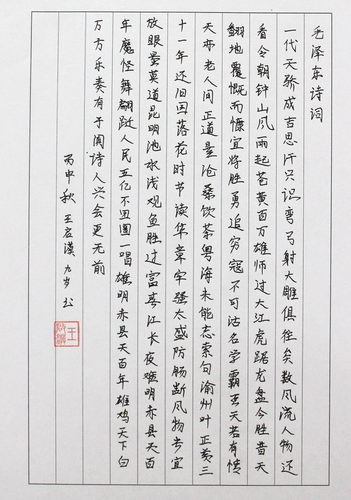 毛泽东诗词
一代天骄成吉思汗只识弯弓射大雕俱往矣数风流人物还
看今朝钟山风雨起苍黄百万雄师过大江虎踞龙盘今胜昔天
翻地覆慨而慷宜将胜勇追穷寇不可沽名学霸王天若有情
天亦老人间正道是沧桑饮茶粤海未能忘索句渝州叶正黄三
十一年还旧国落花时节读华章牢骚太盛防肠断风物长宜
放眼量莫道昆明池水浅观鱼胜过富春江长夜难明赤县天百
年魔怪舞翩跹人民五亿不团圆一唱雄明赤县天百年雄鸡天下白
万方乐奏有于阗诗人兴会更无前
丙申秋 王启漢 九岁书